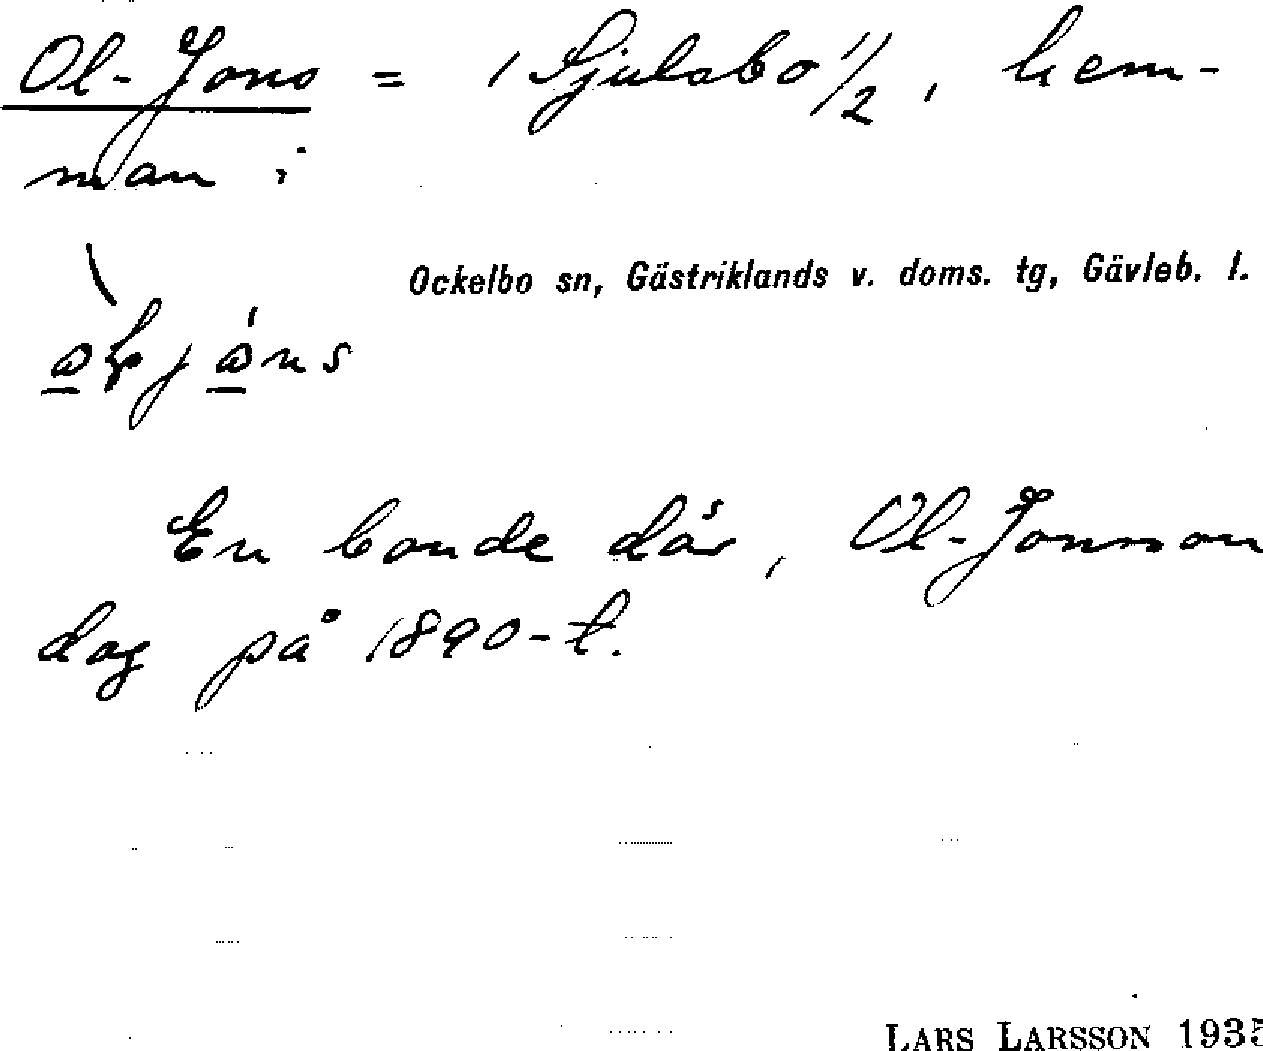 Ol-Jons = 1 Sjulsbo 1/2, hem-
man i
Ockelbo sn, Gästriklands v. doms. tg, Gävleb. l.
En bonde där, Ol-Jonsson
dog på 1890-t.
LARS LARSSON 1935